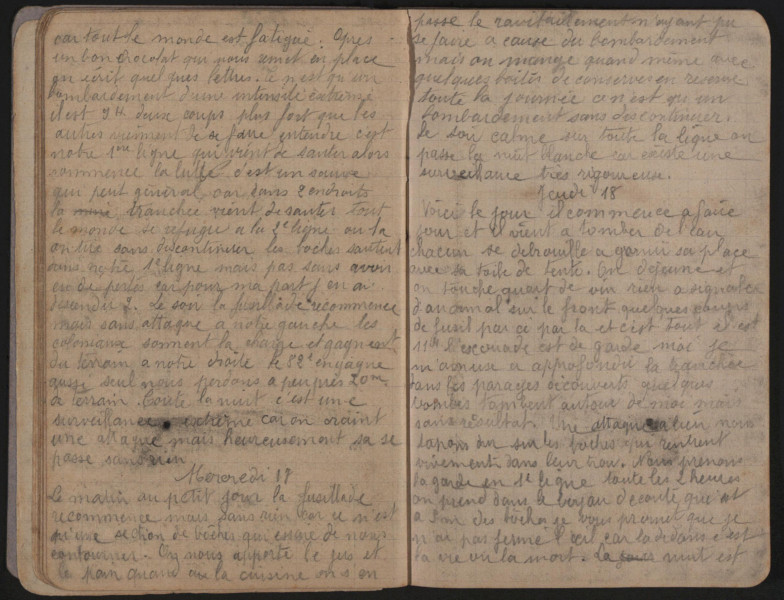 car tout le monde est fatigué. Apres
un bon chocolat qui nous remet en place
on ecrit quelques lettres. Ce n'est qu'un
bombardement d'une intensité extreme
il est 9H deux coups plus fort que les
autres viennent de se faire entendre c'est
notre 1ere ligne qui vient de sauter alors
commence la lutte c'est un sauve
qui peut général, car dans 2 endroits
la mine tranchée vient de sauter tout
le monde se refugie a la 2e ligne ou la
on tire sans discontinuer les boches sautent
dans notre 1e ligne mais pas sans avoir
eu de pertes car pour ma part j'en ai
descendu 2. Le soir la fusillade recommence
mais sans attaque a notre gauche les
coloniaux sonnent la charge et gagnent
du terrain a notre droite le 82e engagne
aussi seul nous perdons a peu pres 20m
de terrain. Toute la nuit c'est une
surveillance extreme car on craint
une attaque mais heureusement sa se
passe sans rien
Mercredi 17
Le matin au petit jour la fusillade
recommence mais sans rien car ce n'est
qu'une section de boches qui essaie de nous
contourner. On nous apporte le jus et
le pain quand a la cuisine on s'en
passe le ravitaillement n'ayant pu
se faire a cause du bombardement
mais on mange quand meme avec
quelques boites de conserves en reserve
toute la journée ce n'est qu'un
bombardement sans discontinuer.
Le soir calme sur toute la ligne on
passe la nuit blanche car existe une
surveillance tres rigoureuse.
Jeudi 18
Voici le jour il commence a faire
jour et il vient a tomber de l'eau
chacun se debrouille a garnir sa place
avec sa toile de tente. On dejeune et
on touche quart de vin rien a signaler
d'anormal sur le front quelques coups
de fusil par ci par la et c'est tout il est
11H l'escouade est de garde moi je
m'amuse a approfondir la tranchée
dans les parages decouverts quelques
bombes tapent autour de moi mais
sans resultat. Une attaque a lieu nous
tapons sur les boches qui rentrent
vivement dans leur trou. Nous prenons
la garde en 1e ligne toute les 2 heures
on prend dans le boyau d'ecoute qui est
a 5m des boches je vous promet que je
n'ai pas fermé l'oeil car la dedans c'est
la vie ou la mort. La nuit est